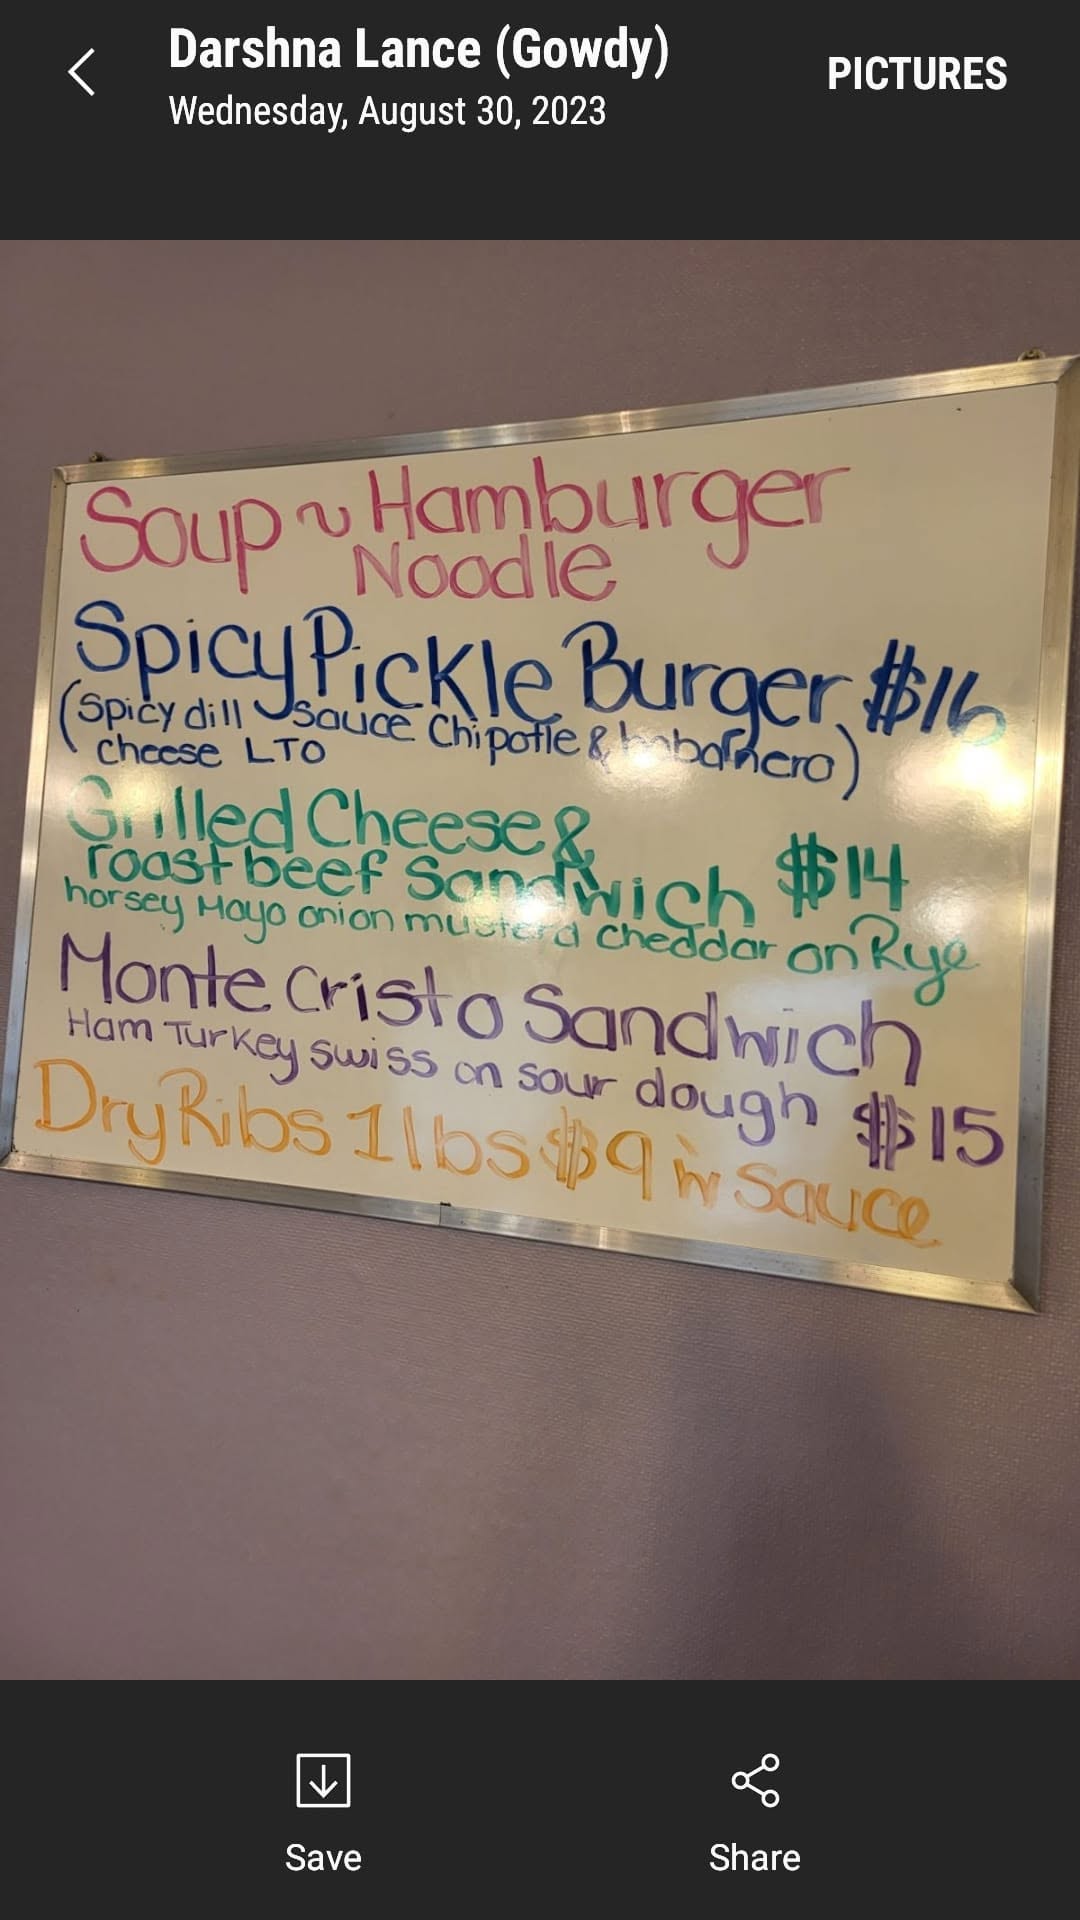 Darshna Lance (Gowdy)
PICTURES
Wednesday, August 30, 2023
Soup ~ Hamburger
Noodle
Spicy Pickle Burger $16
(Spicy dill Sauce Chipotle & habarnero)
cheese LTO
Grilled Cheese &
roast beef Sandwich $14
horsey Mayo onion musterd cheddar on Rye
Monte Cristo Sandwich
Ham Turkey swiss on sour dough $15
Dry Ribs 1 lbs $9 w Sauce
Save
Share